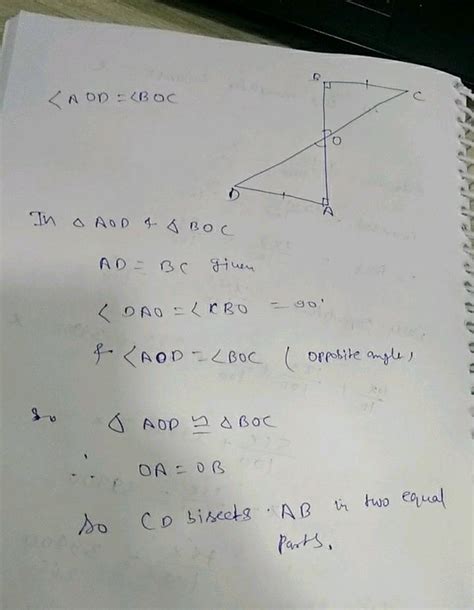 B
C
∠AOD = ∠BOC
O
D
A
In △ AOD & △ BOC
AD = BC given
∠DAO = ∠CBO = 90°
& ∠AOD = ∠BOC ( opposite angle,
So △ AOD ≅ △BOC
∴ OA = OB
So CD bisects AB in two equal
parts.